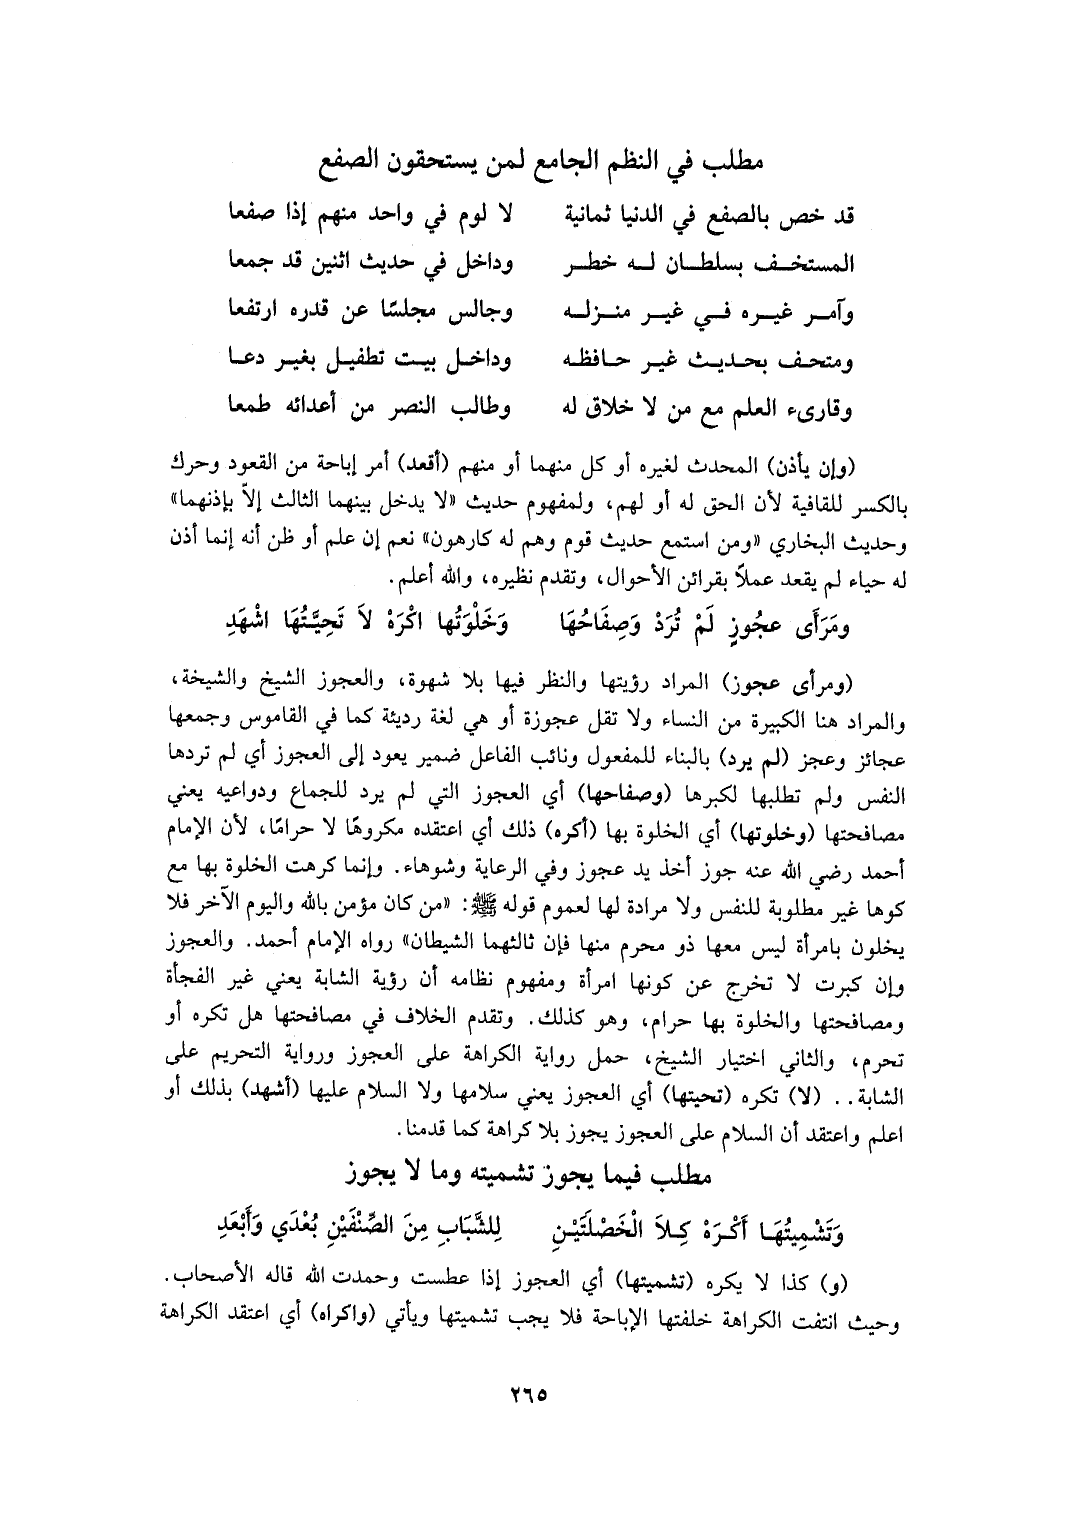 مطلب في النظم الجامع لمن يستحقون الصفع
قد خص بالصفع في الدنيا ثمانية لا لوم في واحد منهم إذا صفعا
المستخف بسلطان له خطر وداخل في حديث اثنين قد جمعا
وآمر غيره في غير منزله وجالس مجلسًا عن قدره ارتفعا
ومتحف بحديث غير حافظه وداخل بيت تطفيل بغير دعا
وقارىء العلم مع من لا خلاق له وطالب النصر من أعدائه طمعا
(وإن يأذن) المحدث لغيره أو كل منهما أو منهم (أقعد) أمر إباحة من القعود وحرك
بالكسر للقافية لأن الحق له أو لهم، ولمفهوم حديث «لا يدخل بينهما الثالث إلاّ بإذنهما»
وحديث البخاري «ومن استمع حديث قوم وهم له كارهون» نعم إن علم أو ظن أنه إنما أذن
له حياء لم يقعد عملاً بقرائن الأحوال، وتقدم نظيره، والله أعلم.
ومَرَأَى عجُوزٍ لَمْ تُرَدْ وَصِفَاحُهَا وَخَلْوَتُها اكْرَهْ لاَ تَحِيَّتُهَا اشْهَدِ
(ومرأى عجوز) المراد رؤيتها والنظر فيها بلا شهوة، والعجوز الشيخ والشيخة،
والمراد هنا الكبيرة من النساء ولا تقل عجوزة أو هي لغة رديئة كما في القاموس وجمعها
عجائز وعجز (لم يرد) بالبناء للمفعول ونائب الفاعل ضمير يعود إلى العجوز أي لم تردها
النفس ولم تطلبها لكبرها (وصفاحها) أي العجوز التي لم يرد للجماع ودواعيه يعني
مصافحتها (وخلوتها) أي الخلوة بها (أكره) ذلك أي اعتقده مكروهًا لا حرامًا، لأن الإمام
أحمد رضي الله عنه جوز أخذ يد عجوز وفي الرعاية وشوهاء. وإنما كرهت الخلوة بها مع
كوها غير مطلوبة للنفس ولا مرادة لها لعموم قوله ﷺ: «من كان مؤمن بالله واليوم الآخر فلا
يخلون بامرأة ليس معها ذو محرم منها فإن ثالثهما الشيطان» رواه الإمام أحمد. والعجوز
وإن كبرت لا تخرج عن كونها امرأة ومفهوم نظامه أن رؤية الشابة يعني غير الفجأة
ومصافحتها والخلوة بها حرام، وهو كذلك. وتقدم الخلاف في مصافحتها هل تكره أو
تحرم، والثاني اختيار الشيخ، حمل رواية الكراهة على العجوز ورواية التحريم على
الشابة.. (لا) تكره (تحيتها) أي العجوز يعني سلامها ولا السلام عليها (أشهد) بذلك أو
اعلم واعتقد أن السلام على العجوز يجوز بلا كراهة كما قدمنا.
مطلب فيما يجوز تشميته وما لا يجوز
وَتَشْمِيتُهَا أَكْرَهْ كِلاَ الْخَصْلَتَيْنِ لِلشَّبَابِ مِنَ الصِّنْفَيْنِ بُعْدَي وَأَبْعَدِ
(و) كذا لا يكره (تشميتها) أي العجوز إذا عطست وحمدت الله قاله الأصحاب.
وحيث انتفت الكراهة خلفتها الإباحة فلا يجب تشميتها ويأتي (واكراه) أي اعتقد الكراهة
٢٦٥